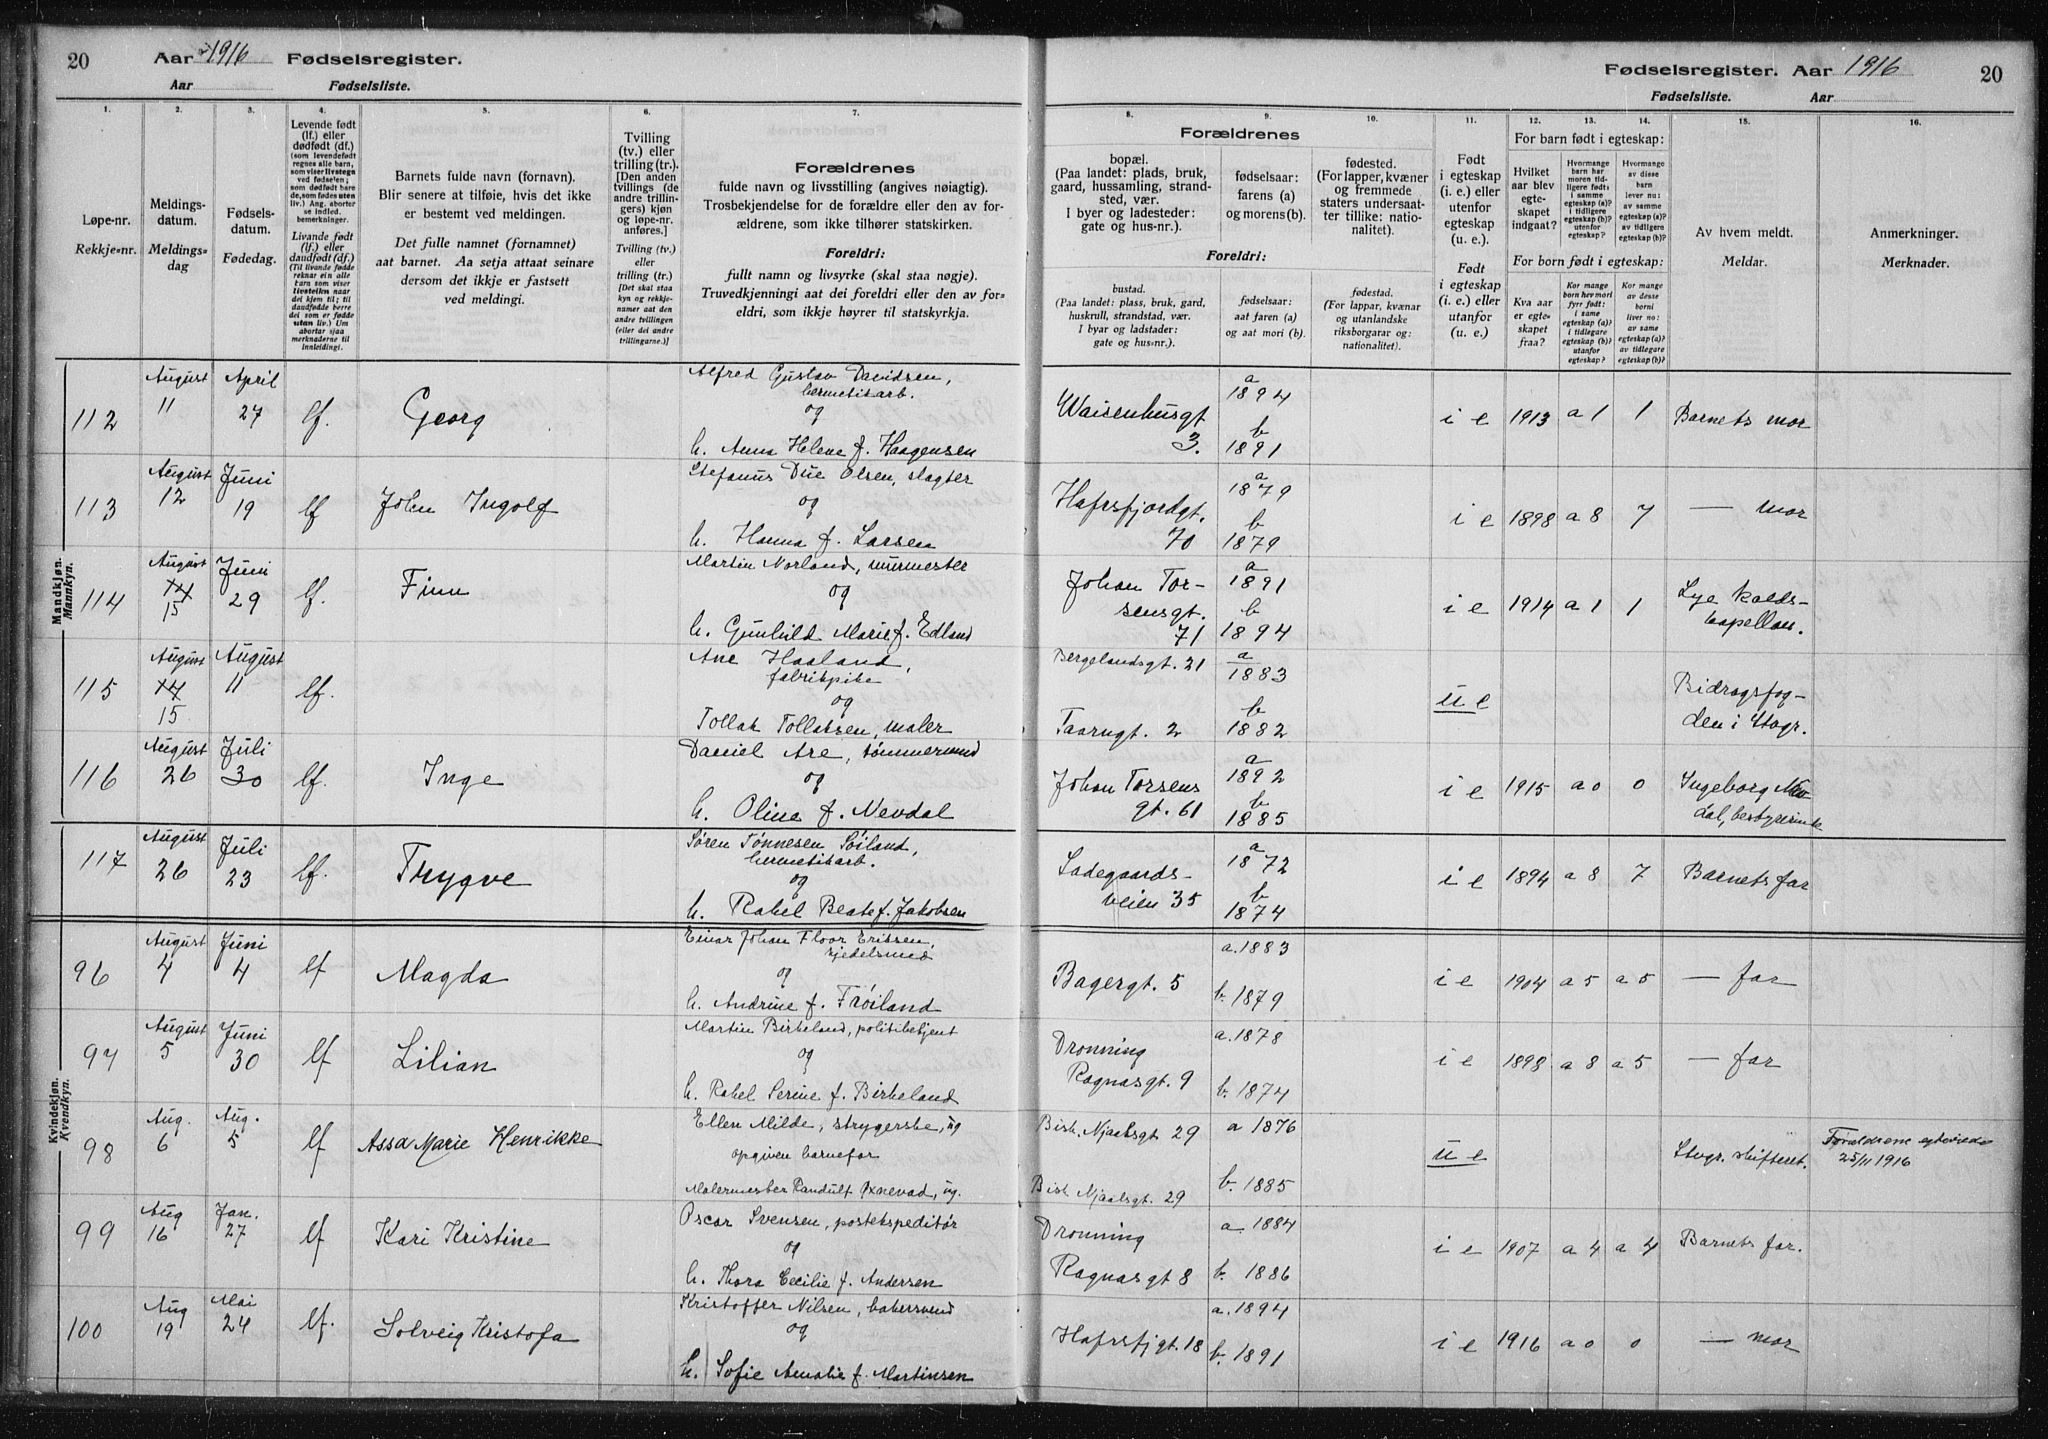 20 Aar 1916 Fødselsregister.
Aar Fødselsliste.
Fødselsregister. Aar 1916 20
Fødselsliste. Aar
1. 2. 3. 4. 5. 6. 7. 8. 9. 10. 11. 12. 13. 14. 15. 16.
Løpe-nr.
Rekkje-nr.
Meldings-
datum.
Meldings-
dag
Fødsels-
datum.
Fødedag.
Levende født
(lf.) eller
dødfødt (df.)
(som levendefødt
regnes alle barn,
som viser livstegn
ved fødselen;
som dødfødt bare
de, som fødes uten
liv.) Ang. aborter
se indled.
bemerkninger.
Livande født
(lf.) eller
daudfødt (df.)
(Til livande fødde
reknar ein alle
barn som viser
livsteikn naar
dei kjem til; til
daudfødde berre
dei som er fødde
utan liv.) Um
abortar sjaa
merknaderne til
innleidingi.
Barnets fulde navn (fornavn).
Blir senere at tilføie, hvis det ikke
er bestemt ved meldingen.
Det fulle namnet (fornamnet)
aat barnet. Aa setja attaat seinare
dersom det ikkje er fastsett
ved meldingi.
Tvilling
(tv.) eller
trilling (tr.).
[Den anden
tvillings (de
andre trillin-
gers) kjøn
og løpe-nr.
anføres.]
Tvilling (tv.)
eller
trilling (tr.)
[Det skal staa
kyn og rekkje-
numer aat den
andre tvillingen
(eller dei andre
trillingarne.)]
Forældrenes
fulde navn og livsstilling (angives nøiagtig).
Trosbekjendelse for de forældre eller den av for-
ældrene, som ikke tilhører statskirken.
Foreldri:
fullt namn og livsyrke (skal staa nøgje).
Truvedkjenningi aat dei foreldri eller den av for-
eldri, som ikkje høyrer til statskyrkja.
Forældrenes
bopæl.
(Paa landet: plads, bruk,
gaard, hussamling, strand-
sted, vær.
I byer og ladesteder:
gate og hus-nr.).
fødselsaar:
farens (a)
og morens (b).
fødested.
(For lapper, kvæner
og fremmede
staters undersaat-
ter tillike: natio-
nalitet).
Foreldri:
bustad.
(Paa landet: plass, bruk, gard,
huskrull, strandstad, vær.
I byar og ladstader:
gate og hus-nr.).
fødselsaar:
aat faren (a)
og aat mori (b).
fødestad.
(For lappar, kvænar
og utanlandske
riksborgarar og:
nationalitet).
Født
i egteskap
(i. e.) eller
utenfor
egteskap
(u. e.).
Født
i egteskap
(i. e.) eller
utanfor
(u. e.).
For barn født i egteskap:
Hvilket
aar blev
egte-
skapet
indgaat?
Hvormange
barn har
moren tid-
ligere født:
i samme
egteskap (a)?
i tidligere
egteskap (b)?
utenfor
egteskap?
Hvormange
av disse
barn
lever nu:
av samme
egteskap (a)?
av tidligere
egteskap (b)?
For born født i egteskap:
Kva aar
er egte-
skapet
fraa?
Kor mange
born hev mori
fyrr født:
i same
egteskap (a)?
i tidlegare
egteskap (b)?
utanfor
egteskap?
Kor mange
av desse
borni
liver no:
av same
egteskap (a)?
av tidlegare
egteskap (b)?
Av hvem meldt.
Meldar.
Anmerkninger.
Merknader.
Mandkjøn.
Mannkyn.
112 August 11 April 27 lf. Georg
Alfred Gustav Davidsen,
hermetikarb.
og
h. Anna Helene f. Haagensen
Waisenhusgt 3. a 1894 b 1891 i e 1913 a 1 1 Barnets mor
113 August 12 Juni 19 lf John Ingolf
Stefanus Due Olsen, slagter
og
h. Hanna f. Larsen
Hafrsfjordgt. 70 a 1879 b 1879 i e 1898 a 8 7 — mor
114 August 14 15 Juni 29 lf. Finn
Martin Norland, murmester
og
h. Gunhild Marie f. Edland
Johan Tor-
sensgt. 71 a 1891 b 1894 i e 1914 a 1 1 Lye kalds-
kapellan.
115 August 14 15 August 11 lf.
Ane Haaland,
fabrikpike
og
Tollak Tollaksen, maler
Bergelandsgt. 21 a 1883
Taarngt. 2 b 1882 u e Bidragsfog-
den i Stvgr.
116 August 26 Juli 30 lf. Inge
Daniel Are, tømmermand
og
h. Olina f. Nevdal
Johan Torsens
gt. 61 a 1892 b 1885 i e 1915 a 0 0 Ingeborg Nev
dal, bestyrerinde
117 August 26 Juli 23 lf. Thrygve
Søren Tønnesen Søiland,
hermetikarb.
og
h. Rakel Beate f. Jakobsen
Ladegaards-
veien 35 a 1872 b 1874 i e 1894 a 8 7 Barnets far
Kvindekjøn.
Kvendkyn.
96 August 4 Juni 4 lf Magda
Einar Johan Floor Eriksen,
og
h. Andrine f. Frøiland
Bagergt. 5 a. 1883 b. 1879 i e 1904 a 5 a 5 — far
97 August 5 Juni 30 lf Lilian
Martin Birkeland, politibetjent
og
h. Rakel Serine f. Birkeland
Dronning
Ragnasgt. 9 a. 1878 b. 1874 i e 1898 a 8 a 5 — far
98 Aug. 6 Aug. 5 lf Assa Marie Henrikke
Ellen Milde, strygerske, ug
opgiven barnefar
Malermester Randulf Oxnevad, ug.
Bisk. Njaalsgt. 29 a 1876
Bisk Njaalsgt. 29 b. 1885 u e Stvgr. skifteret. Forældrene egteviede
25/11 1916
99 Aug 16 Jan. 27 lf Kari Kristine
Oscar Svensen, postekspeditør
og
h. Thora Cecilie f. Andersen
Dronning
Ragnasgt 8 a 1884 b. 1886 i e 1907 a 4 a 4 Barnets far.
100 Aug 19 Mai 24 lf. Solveig Kristofa
Kristoffer Nilsen, bakersvend
og
h. Sofie Amalie f. Martinsen
Hafrsfjgt. 18 a. 1894 b. 1891 i e 1916 a 0 0 — mor